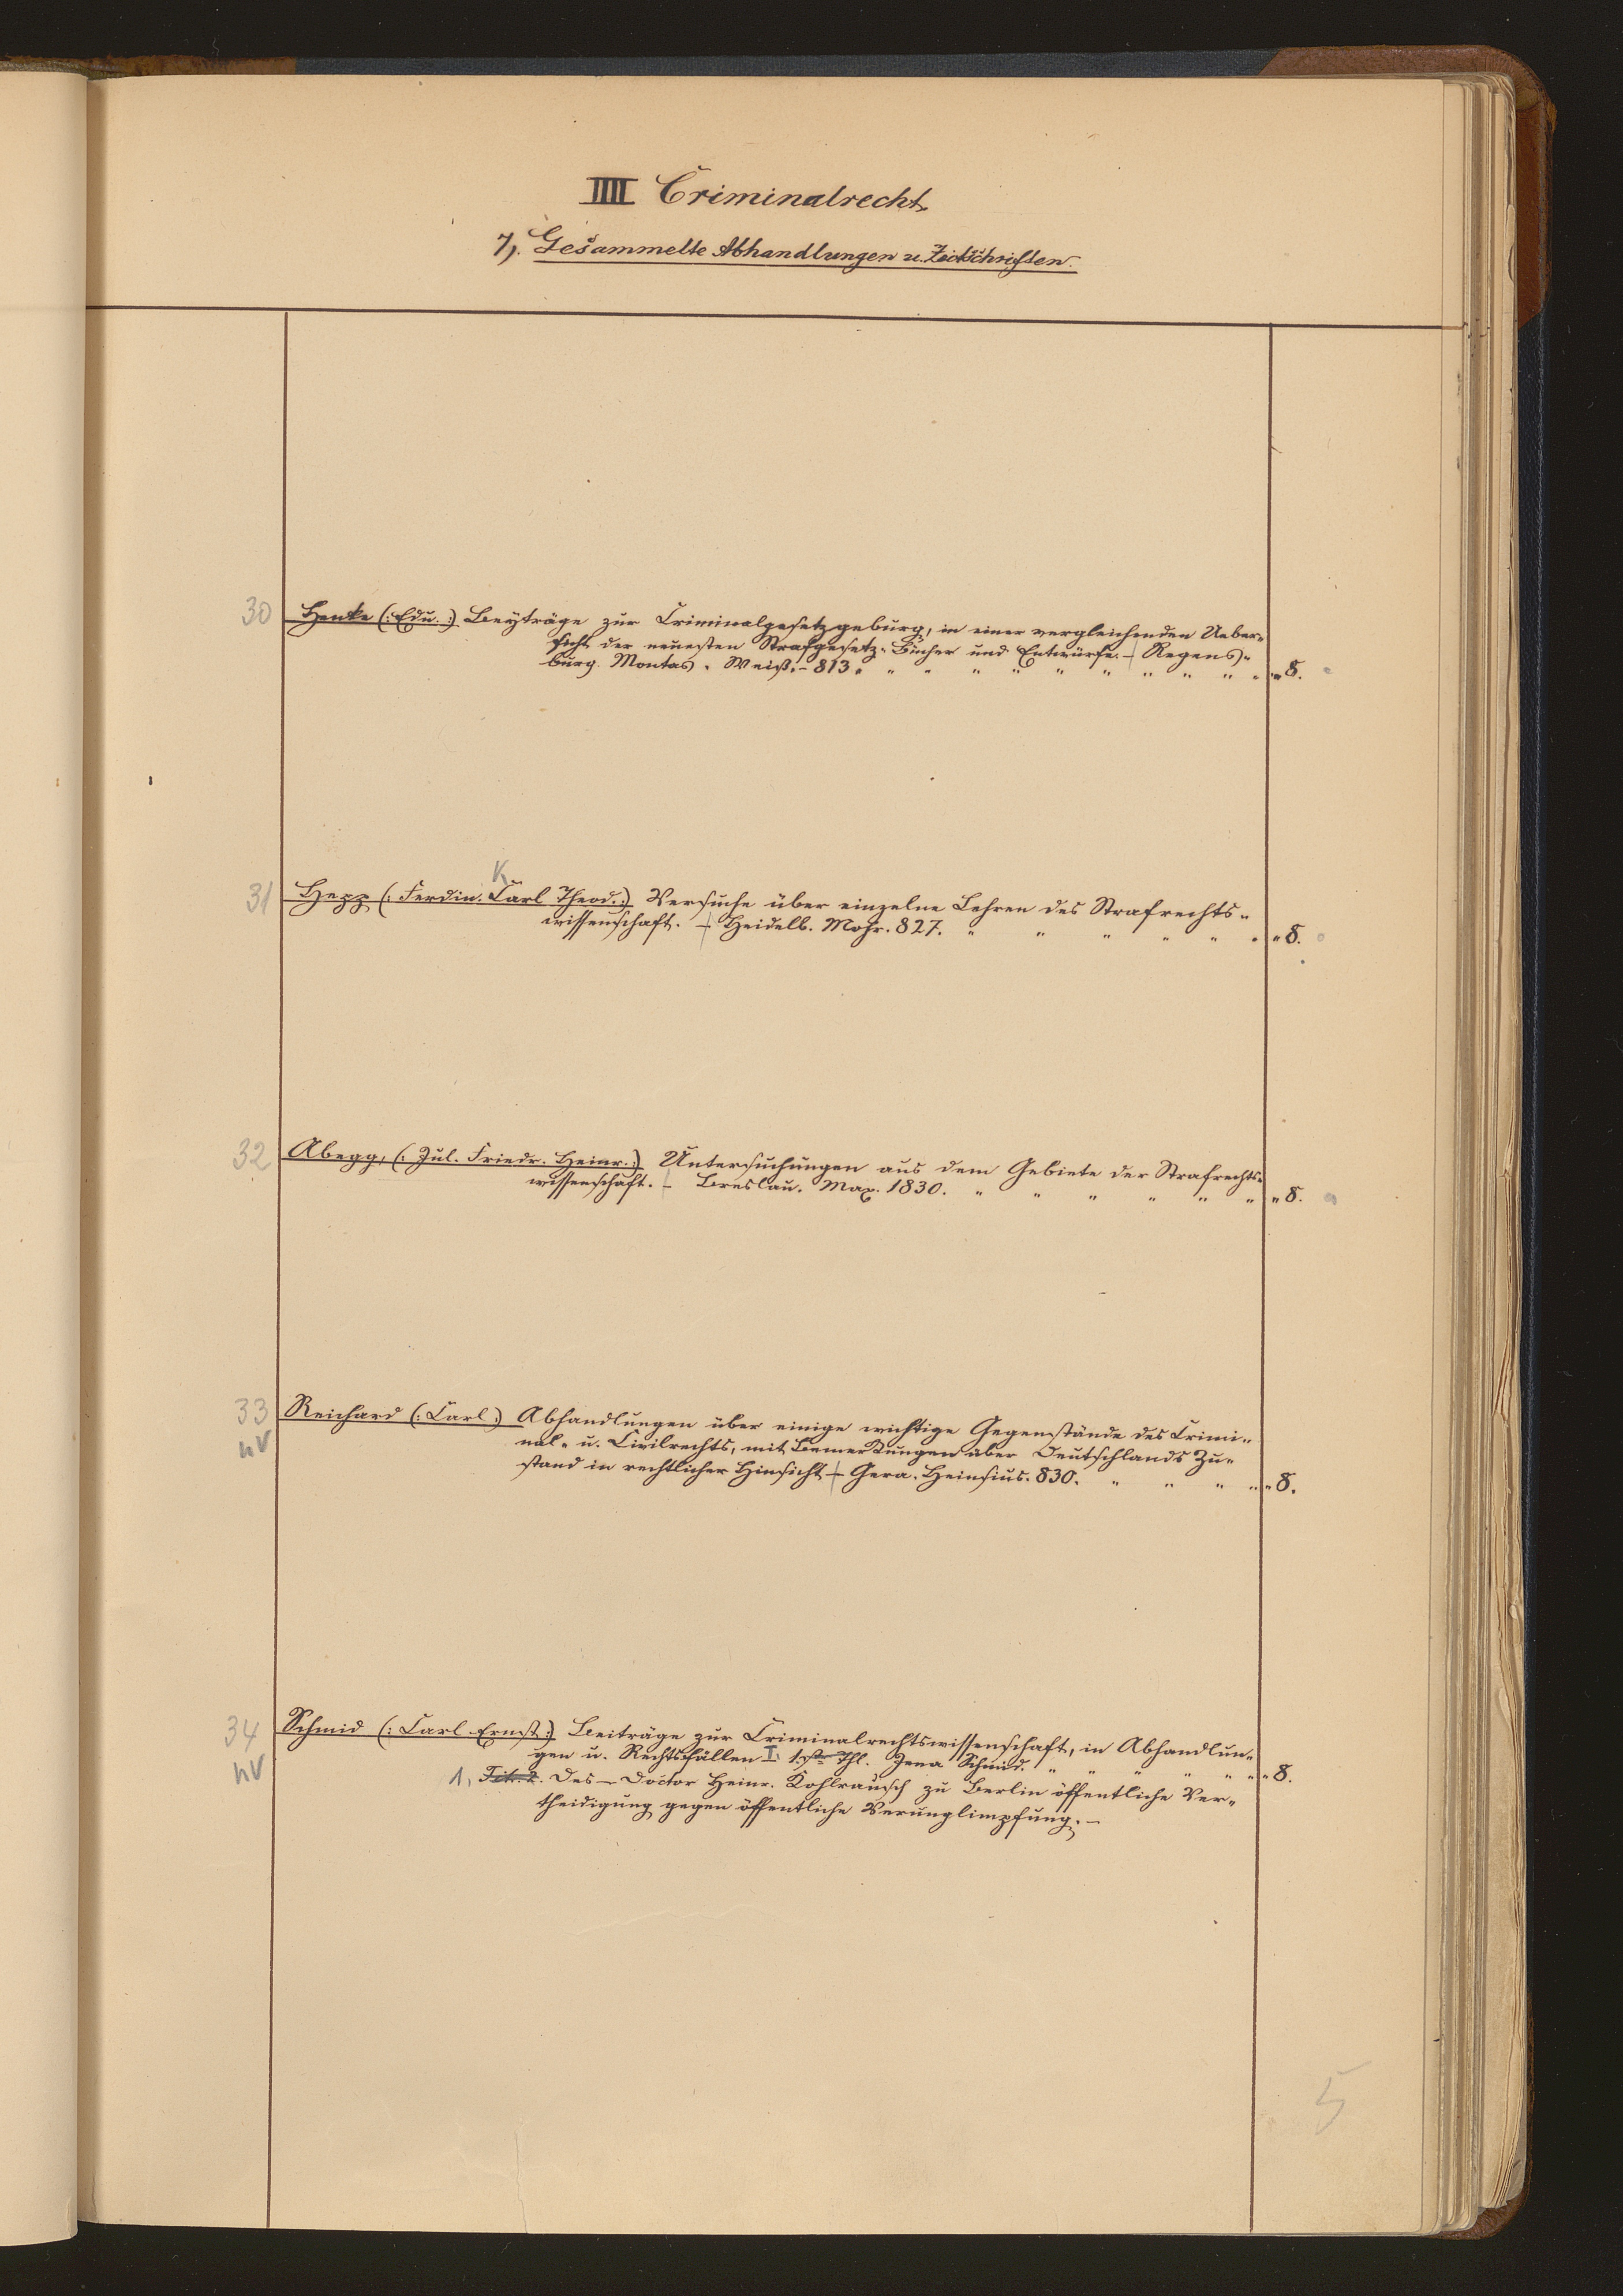 IIII Criminalrecht.
7). Gesammelte Abhandlungen u. Zeitschriften.
30 Henke (: Edu. :) Beyträge zur Criminalgesetzgebung, in einer vergleichenden Ueber-
sicht der neuesten Strafgesetz-Bücher und Entwürfe. - Regens-
burg. Montag. Weiß. - 813. " " " " " " " " " " " 8.
K
31 Hepp (: Ferdin. Carl Theod. :) Versuche über einzelne Lehren des Strafrechts-
wissenschaft. - Heidelb. Mohr. 827. " " " " " " " 8.
32 Abegg, (: Jul. Friedr. Heinr. :) Untersuchungen aus dem Gebiete der Strafrechts-
wissenschaft. - Breslau. Max. 1830. " " " " " " " 8.
33 Reichard (: Carl :) Abhandlungen über einige wichtige Gegenstände des Crimi-
nV nal- u. Civilrechts, mit Bemerkungen über Deutschlands Zu-
stand in rechtlicher Hinsicht - Gera. Heinsius. 830. " " " " " 8.
34 Schmid (: Carl Ernst :) Beiträge zur Criminalrechtswissenschaft, in Abhandlun-
nV gen u. Rechtsfällen I. 1.ster Thl. Jena Schmid. " " " " " " " 8.
1, Tit. 2. Des - Doctor Heinr. Kohlrausch zu Berlin öffentliche Ver-
theidigung gegen öffentliche Verunglimpfung. -
5